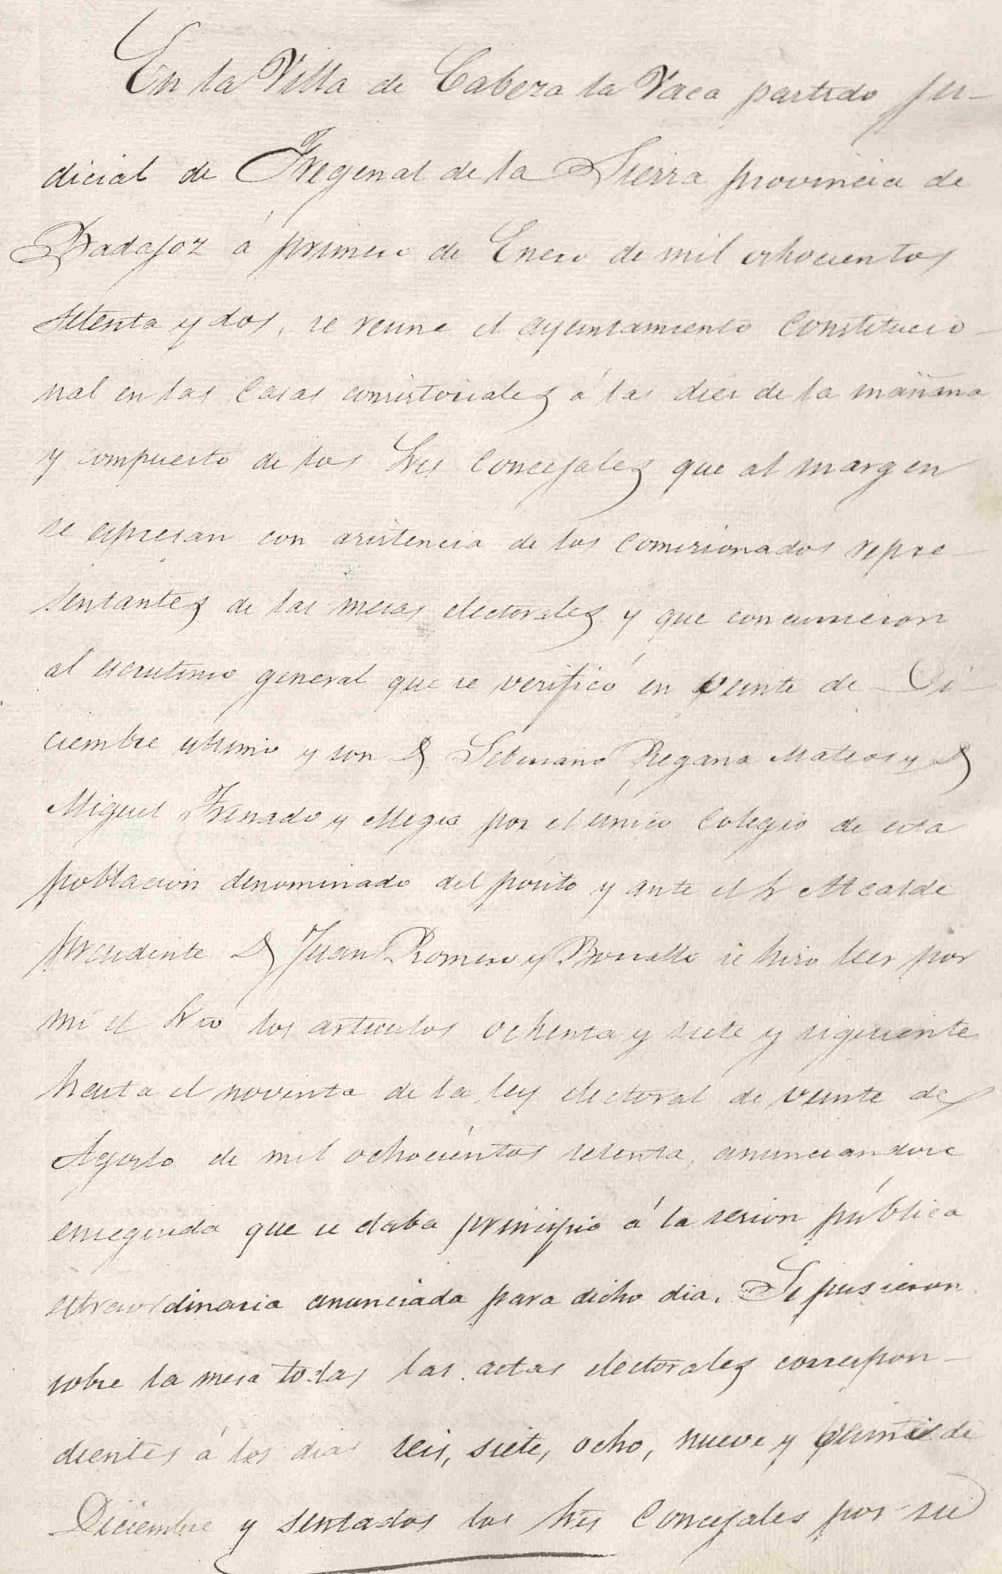 En la Villa de Cabeza la Vaca partido ju-
dicial de Fregenal de la Sierra provincia de
Badajoz á primero de Enero de mil ochocientos
setenta y dos, se reune el ayuntamiento Constitucio-
nal en las Casas consistoriales á las diez de la mañana
y compuesto de los Sres Concejales que al margen
se espresan con asistencia de los comisionados repre-
sentantes de las mesas electorales y que concurrieron
al escrutinio general que se verificó en veinte de Di-
ciembre ultimo y son D Seberiano Regaña Mateos y D
Miguel Frenado y Megia por el único Colegio de esta
poblacion denominado del posito y ante el Sr Alcalde
presidente D Juan Romero y Borrallo se hizo leer por
mi el Srio los articulos ochenta y siete y siguiente
hasta el noventa de la ley electoral de veinte de
Agosto de mil ochocientos setenta, anunciandose
enseguida que se daba principio á la sesion pública
estraordinaria anunciada para dicho dia. Se pusieron
sobre la mesa todas las actas electorales correspon-
dientes á los dias seis, siete, ocho, nueve y veinte de
Diciembre y sentados los Sres Concejales por su